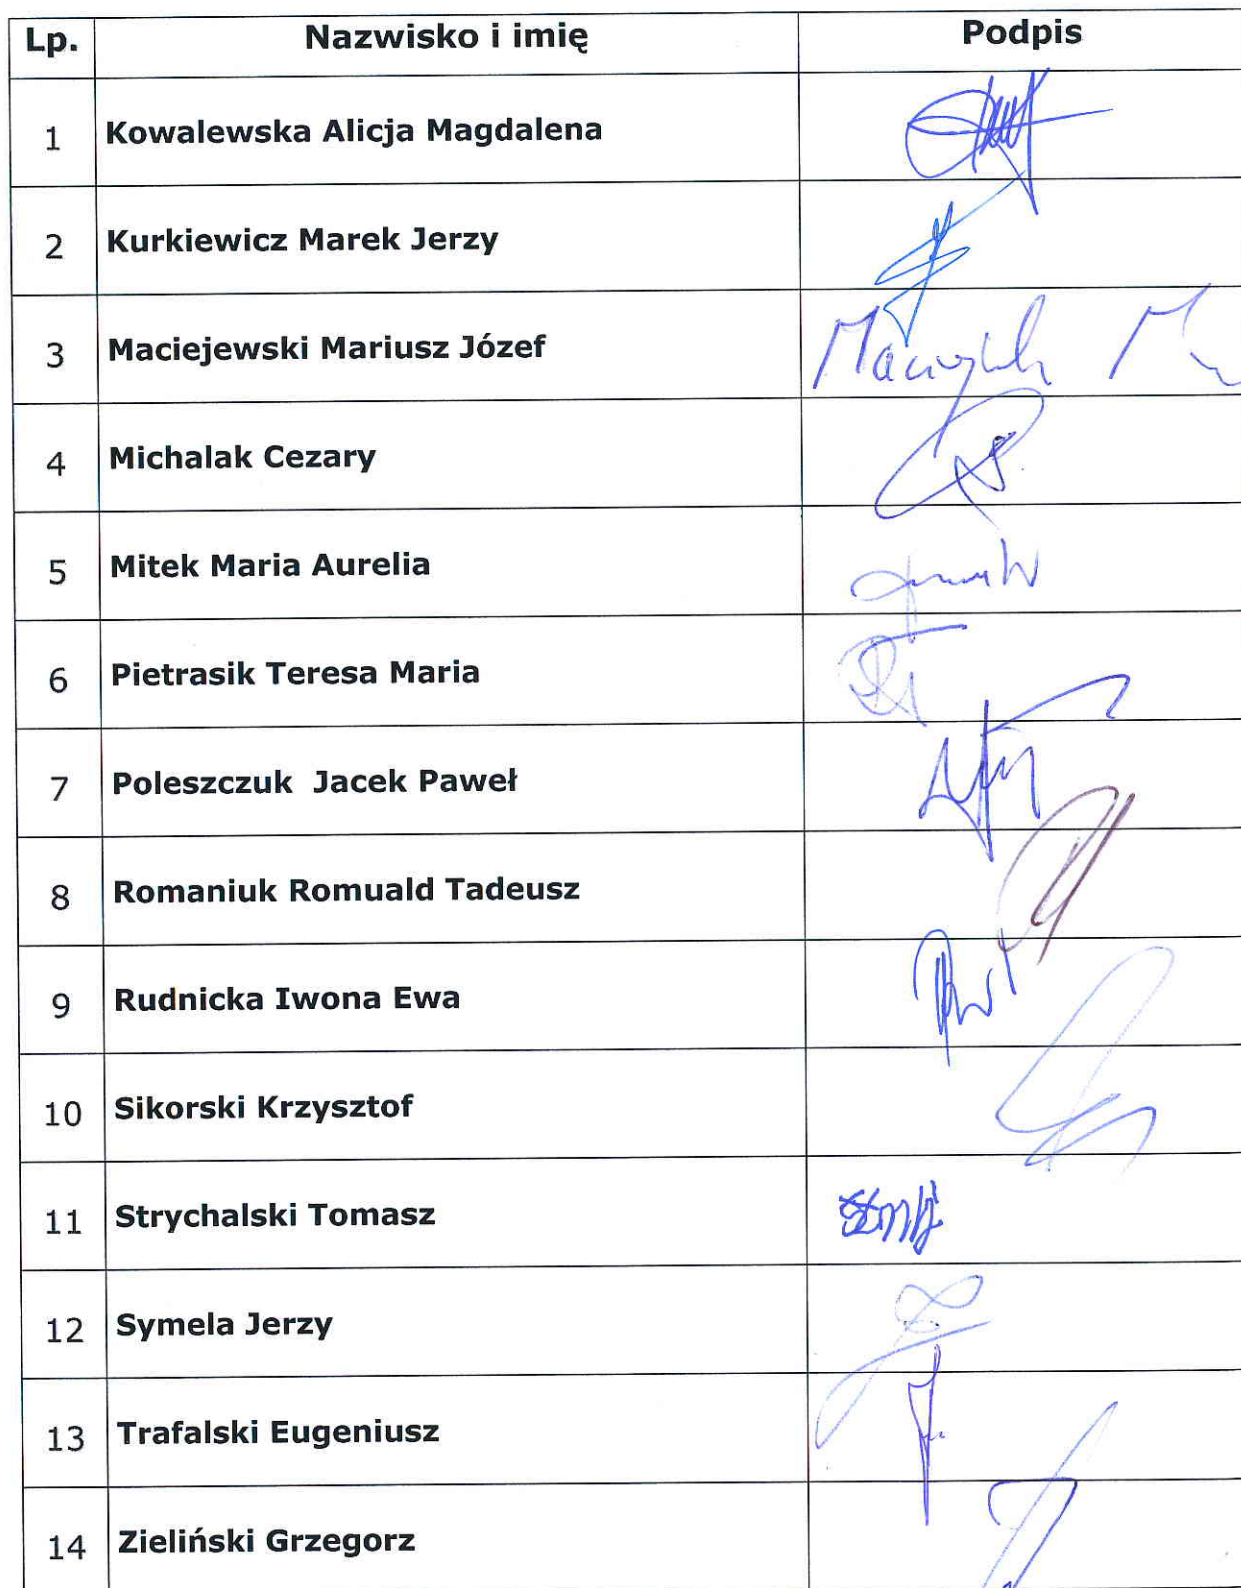 Lp. Nazwisko i imię Podpis
1 Kowalewska Alicja Magdalena
2 Kurkiewicz Marek Jerzy
3 Maciejewski Mariusz Józef
4 Michalak Cezary
5 Mitek Maria Aurelia
6 Pietrasik Teresa Maria
7 Poleszczuk Jacek Paweł
8 Romaniuk Romuald Tadeusz
9 Rudnicka Iwona Ewa
10 Sikorski Krzysztof
11 Strychalski Tomasz
12 Symela Jerzy
13 Trafalski Eugeniusz
14 Zieliński Grzegorz